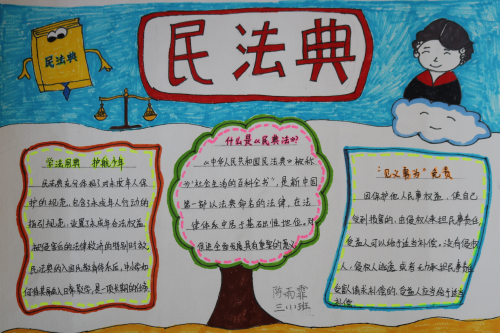 民法典
民法典
学法用典 护航少年
民法典充分体现了对未成年人保
护的规范,包含了未成年人行为的
指引规范,设置了未成年合法权益
被侵害后的法律救济的特别时效,
民法典的入
是一项长期的任务。
什么是《民典法》?
《中华人民共和国民法典》被称
为"社会生活的百科全书",是新中国
第一部以法典命名的法律,在法
律体系中居于基础性地位。对
促进全面发展具有重要的意义
"见义勇为"免责
因保护他人民事权益,使自己
受到损害的,由侵权人承担民事责任,
受益人可以给予适当补偿,没有侵权
人,侵权人逃逸或者无力承担民事责任,
受害人请求补偿的,受益人应当给予适当
补偿
陈雨霏
三(1)班